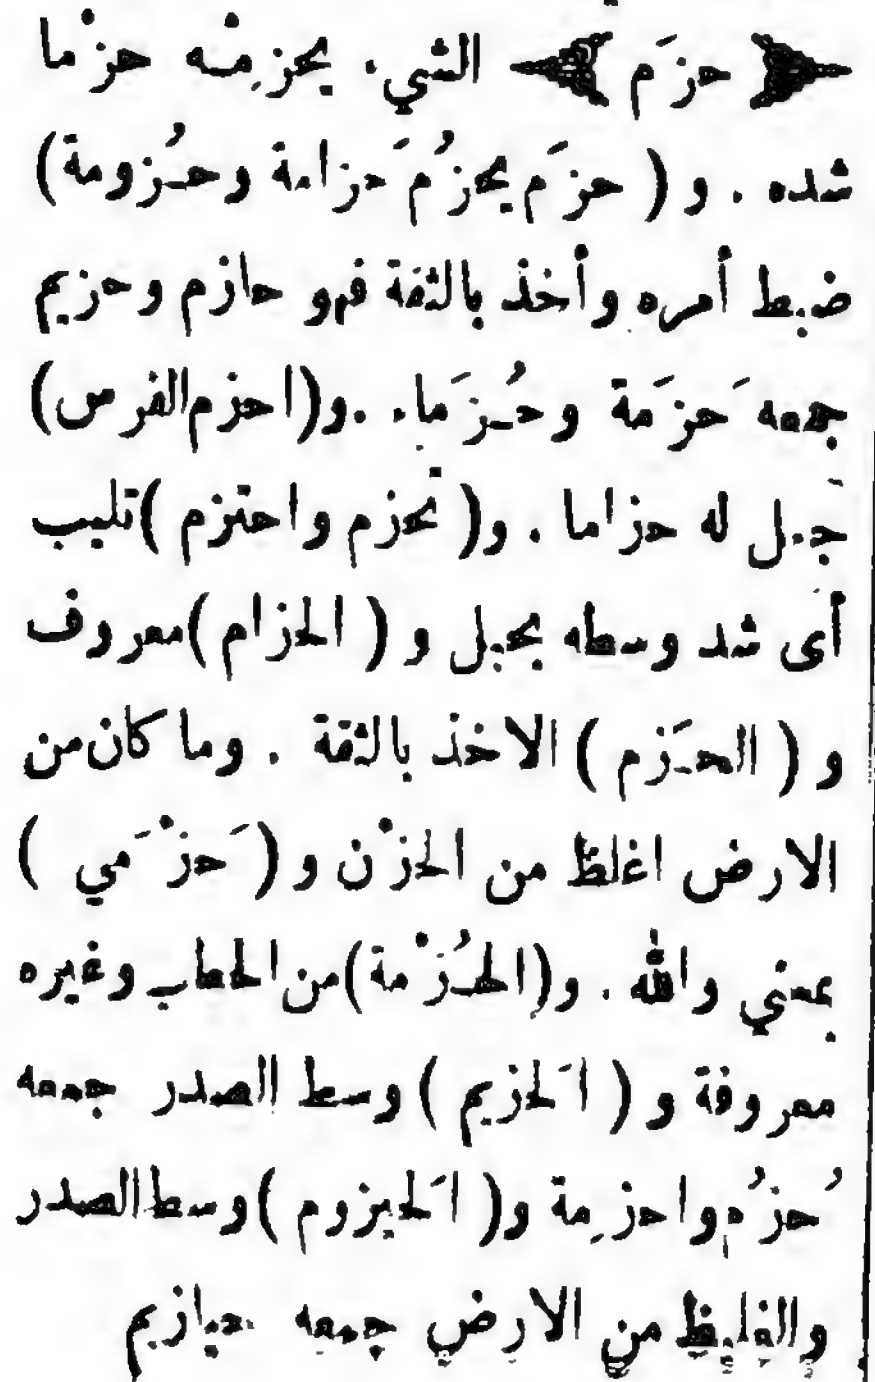 ﴿ حزَم ﴾ الشيء يحزِمُه حزْما
شده . و ( حزَم يحزُم حَزامة وحُزومة )
ضبط أمره وأخذ بالثقة فهو حازم وحزيم
جمعه حَزَمة وحُزَماء .و(احزم الفرس)
جعل له حزاما . و( تحزم واحتزم )تلبب
أى شد وسطه بحبل و ( الحزام )معروف
و ( الحَزم ) الاخذ بالثقة . وما كان من
الارض اغلظ من الحزْن و ( حَزْمَي )
بمعني والله . و(الحُزْمة)من الحطب وغيره
معروفة و ( الحَزيم ) وسط الصدر جمعه
حُزُم واحزِمة و( الحَيزوم )وسط الصدر
والغليظ من الارض جمعه حيازيم